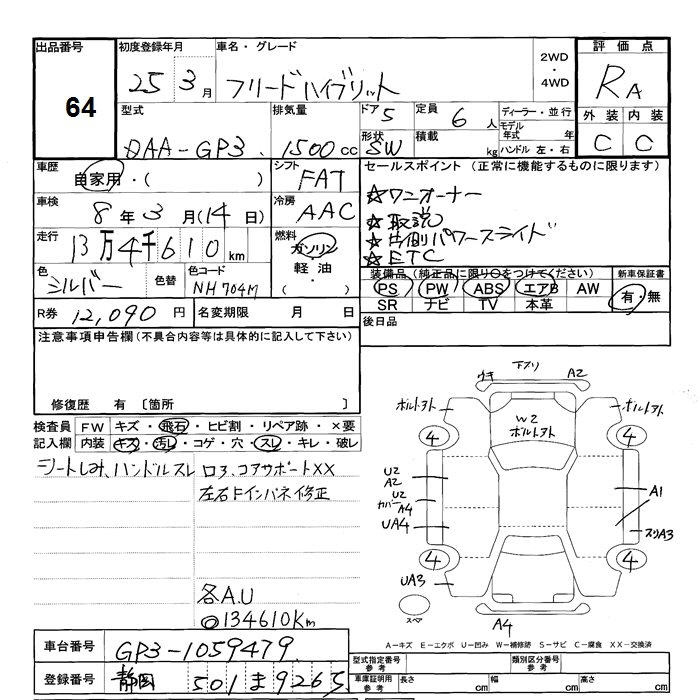 出品番号
64
初度登録年月
25 3月
車名・グレード
フリードハイブリット
2WD
・
4WD
評価点
RA
外装 内装
C C
型式
DAA-GP3
排気量
1500cc
ドア 5
形状 SW
定員 6人
積載 kg
ディーラー・並行
モデル年式 年
ハンドル 左・右
車歴
自家用・( )
シフト
FAT
車検
8年3月(14日)
冷房
AAC
走行
13万4千610km
燃料
ガソリン
軽油・
( )
色
シルバー
色替
色コード
NH704M
R券 12,090円
名変期限 月 日
セールスポイント (正常に機能するものに限ります)
☆ワンオーナー
☆取説
☆片側パワースライド
☆ETC
装備品 (純正品に限り○をつけてください)
新車保証書
PS PW ABS エアB AW
有・無
SR ナビ TV 本革
後日品
注意事項申告欄(不具合内容等は具体的に記入して下さい)
修復歴 有 〔箇所 〕
検査員記入欄
FW キズ・飛石・ヒビ割・リペア跡・×要
内装 キズ・汚レ・コゲ・穴・スレ・キレ・破レ
シートしみ、ハンドルスレ
ロア、コアサポートXX
左右Fインパネ修正
各A.U
◎134610Km
下スリ
ウキ A2
ボルトアト ボルトアト
W2
ボルトアト
4 4
U2
A2
U2
カバーA4
UA4
A1
スリA3
4 4
UA3
スペア
A4
A−キズ E−エクボ U−凹み W−補修跡 S−サビ C−腐食 XX−交換済
車台番号
GP3-1059479
登録番号
静岡 501 ま 9265
型式指定番号
参考
類別区分番号
参考
車庫証明用
参考
長さ cm
幅 cm
高さ cm